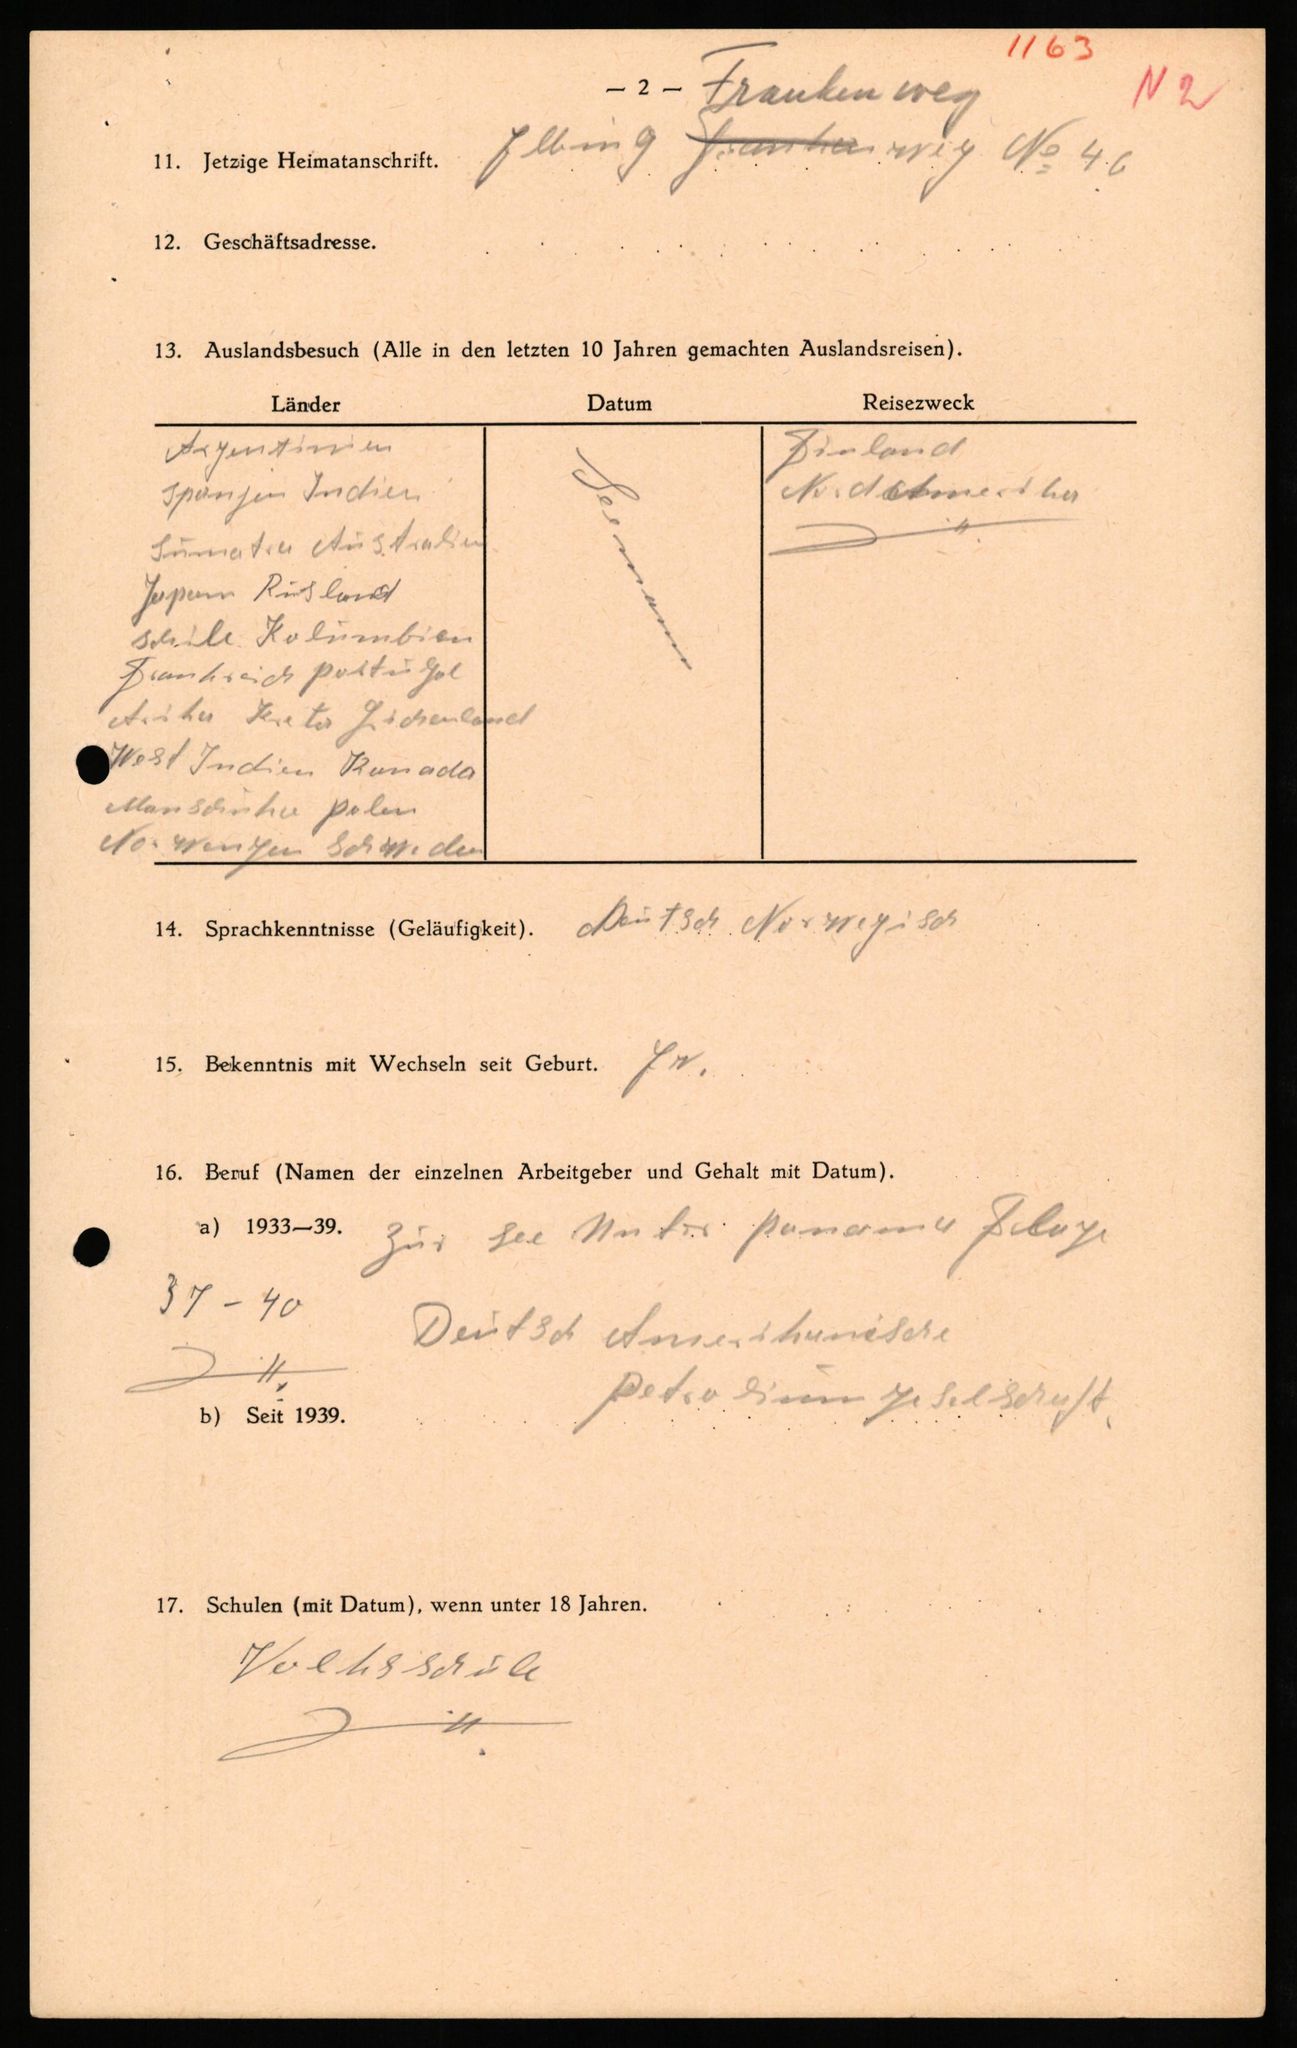 1163
N 2
— 2 — Frankenweg
11. Jetzige Heimatanschrift. Elbing Frankenweg No 46
12. Geschäftsadresse.
13. Auslandsbesuch (Alle in den letzten 10 Jahren gemachten Auslandsreisen).
Länder Datum Reisezweck
Argentinien Seemann Finland
Spanjen Indien Nord Amerika
Sumatra Australien
Japan Rusland
Schile Kolumbien
Frankreich Portugal
Afrika Kreta Grichenland
West Indien Kanada
Manschuka Polen
Norwengen Schweden
14. Sprachkenntnisse (Geläufigkeit). Deutsch Norwegisch
15. Bekenntnis mit Wechseln seit Geburt. Ev.
16. Beruf (Namen der einzelnen Arbeitgeber und Gehalt mit Datum).
a) 1933—39. Zur See Unter Panama Flage
37 - 40 Deutsch Amerikanische
Petrolium geselschaft
b) Seit 1939.
17. Schulen (mit Datum), wenn unter 18 Jahren.
Volksschule